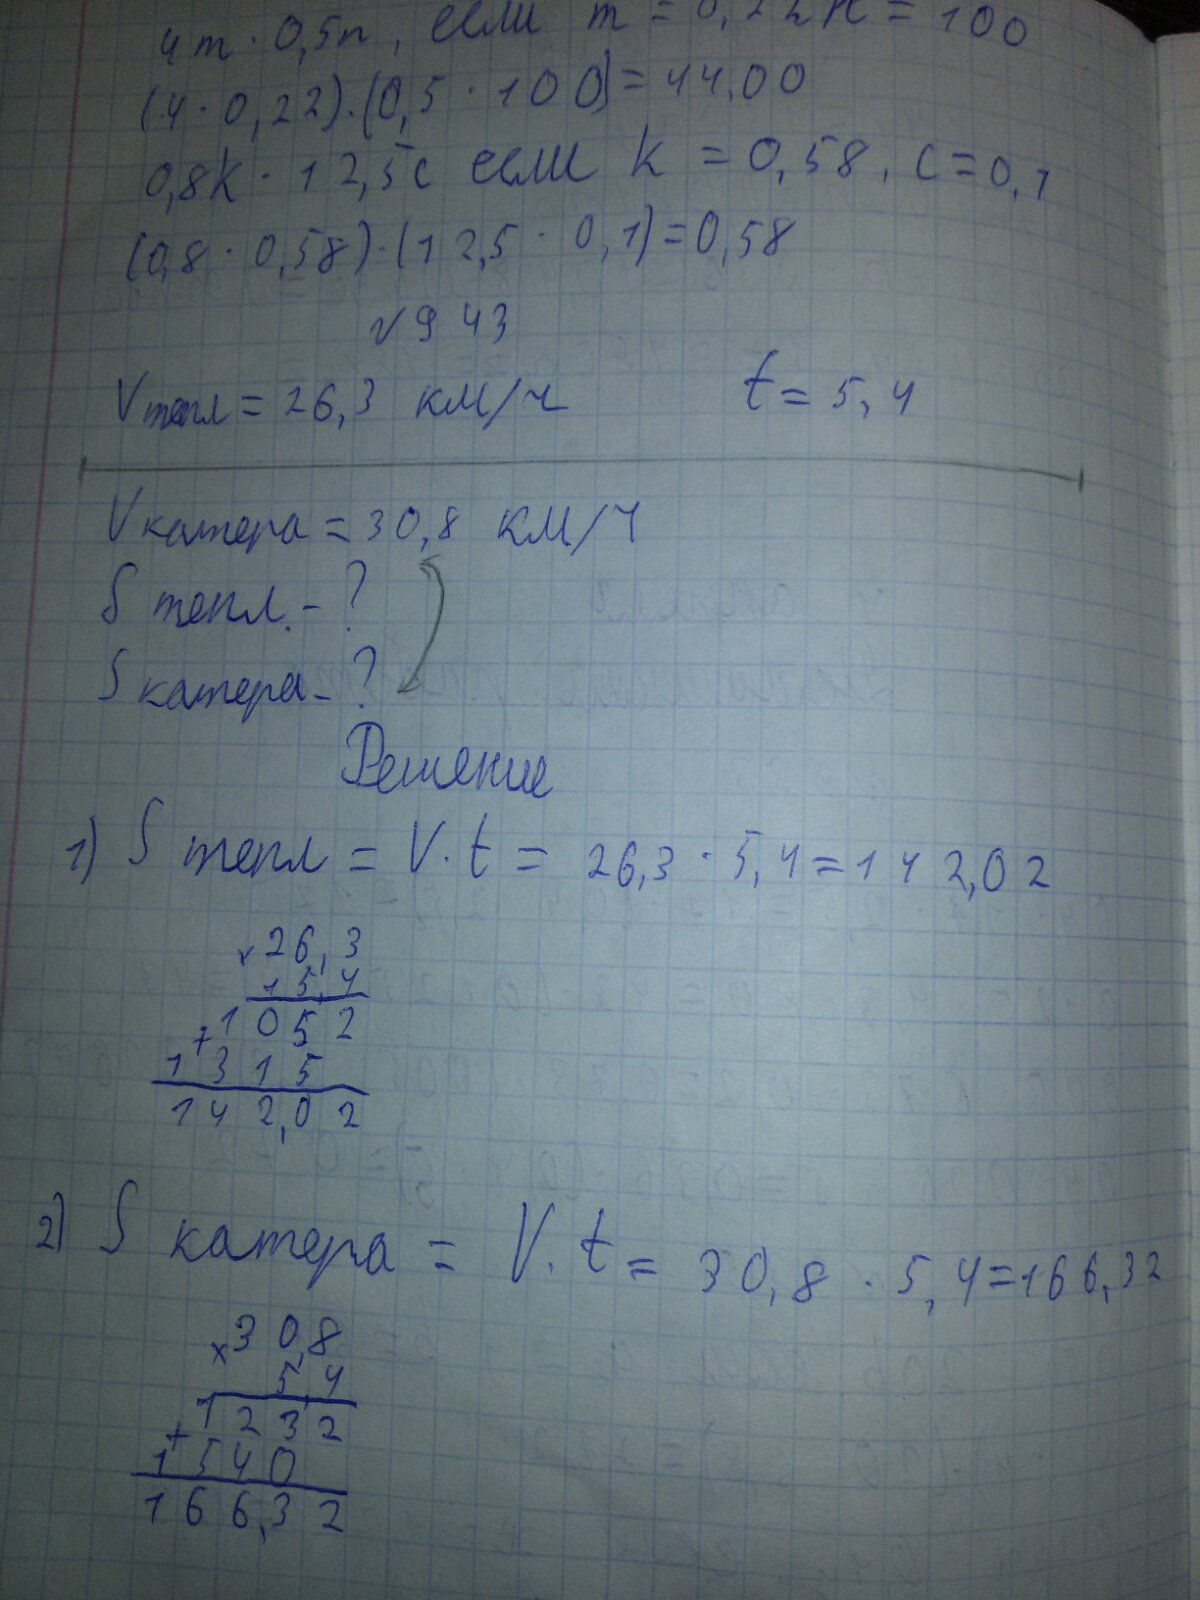 4m · 0,5n, если m = 0,22 n = 100
(4 · 0,22) · (0,5 · 100) = 44,00
0,8k · 12,5c если k = 0,58, c = 0,1
(0,8 · 0,58) · (12,5 · 0,1) = 0,58
√943
Vтепл = 26,3 км/ч t = 5,4
Vкатера = 30,8 км/ч
S тепл. - ?
S катера - ?
Решение
1) S тепл = V · t = 26,3 · 5,4 = 142,02
× 26,3
15,4
+ 1052
1315
142,02
2) S катера = V · t = 30,8 · 5,4 = 166,32
× 30,8
5,4
+ 1232
1540
166,32